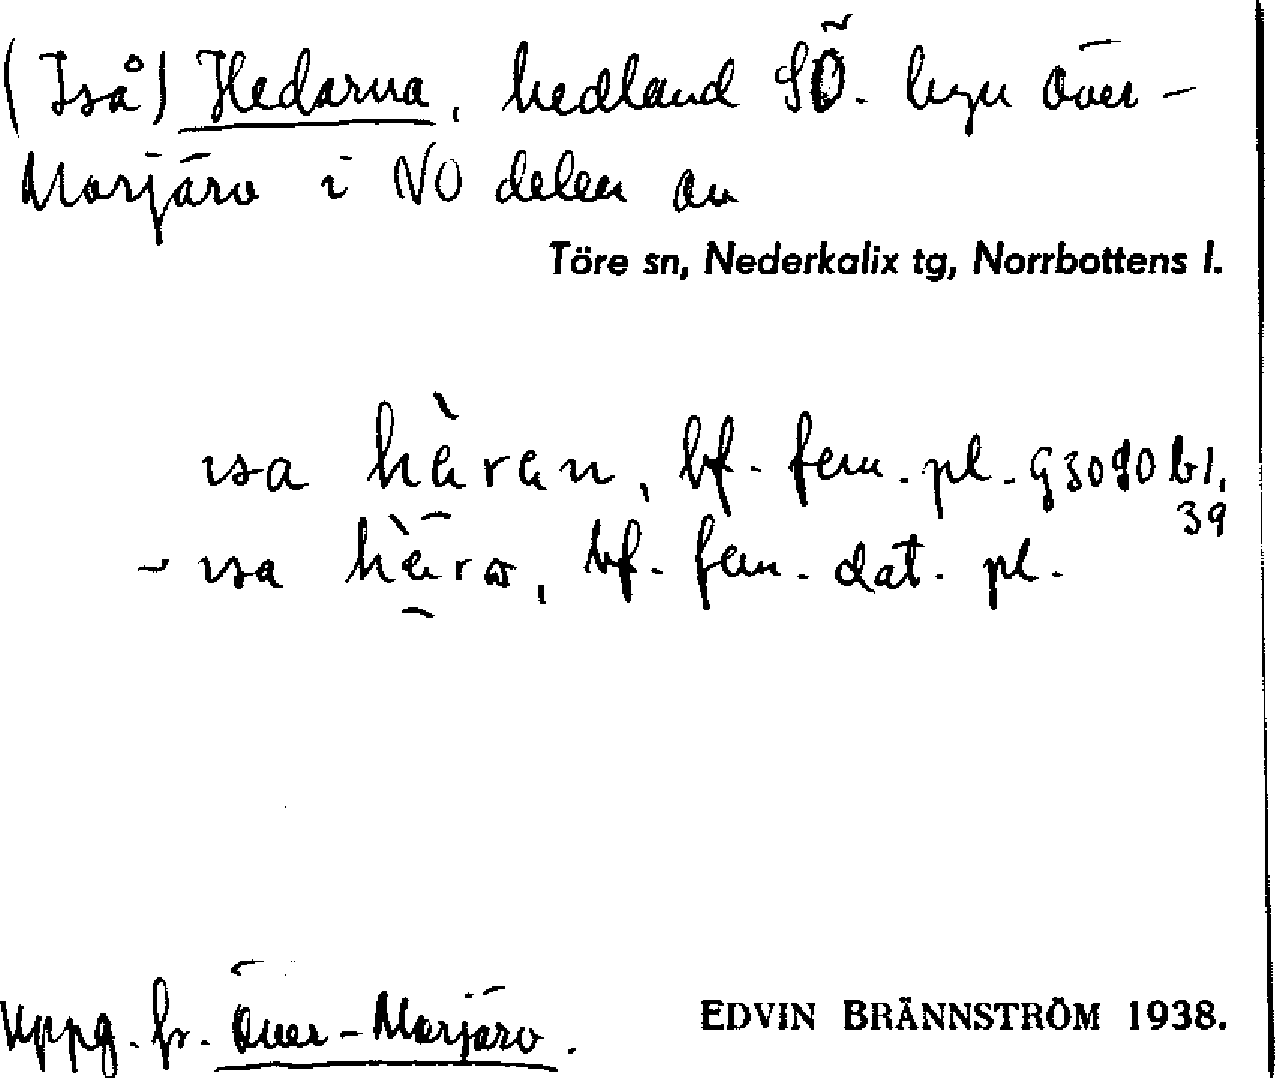 (Iså) Hedarna, hedland SÖ. byn Över-
Morjärv i NO delen av
Töre sn, Nederkalix tg, Norrbottens l.
ɩsa hèran, bf. fem. pl. G3090 b1,
39
- ɩsa hèrω, bf. fem. dat. pl.
Uppg. fr. Över-Morjärv.
EDVIN BRÄNNSTRÖM 1938.